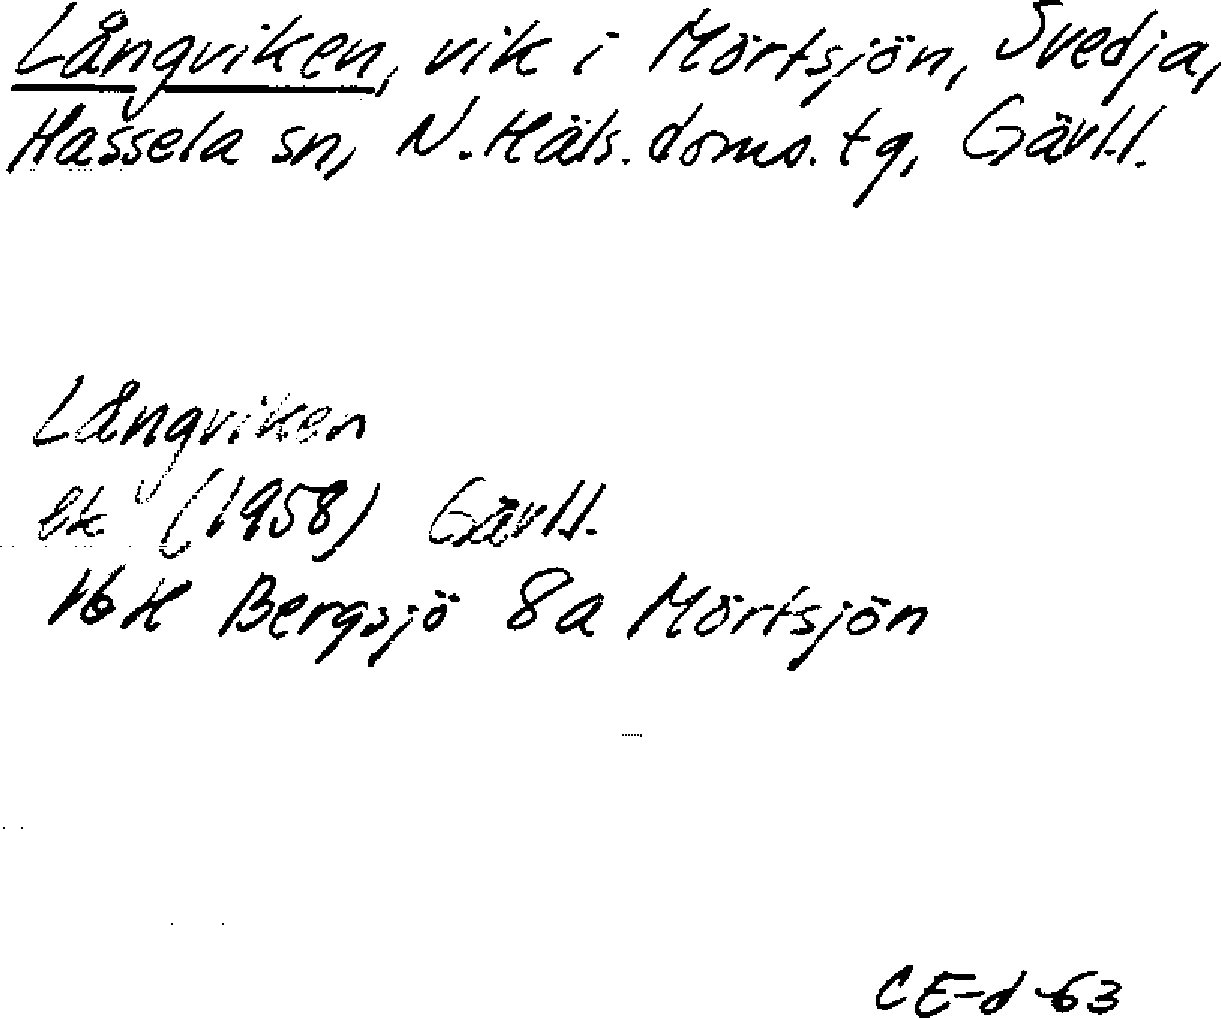 Långviken, vik i Mörtsjön, Svedja,
Hassela sn, N. Häls. doms. tg, Gävl.l.
Långviken
Ek (1958) Gävl.l.
16 H Bergsjö 8a Mörtsjön
CE-d -63